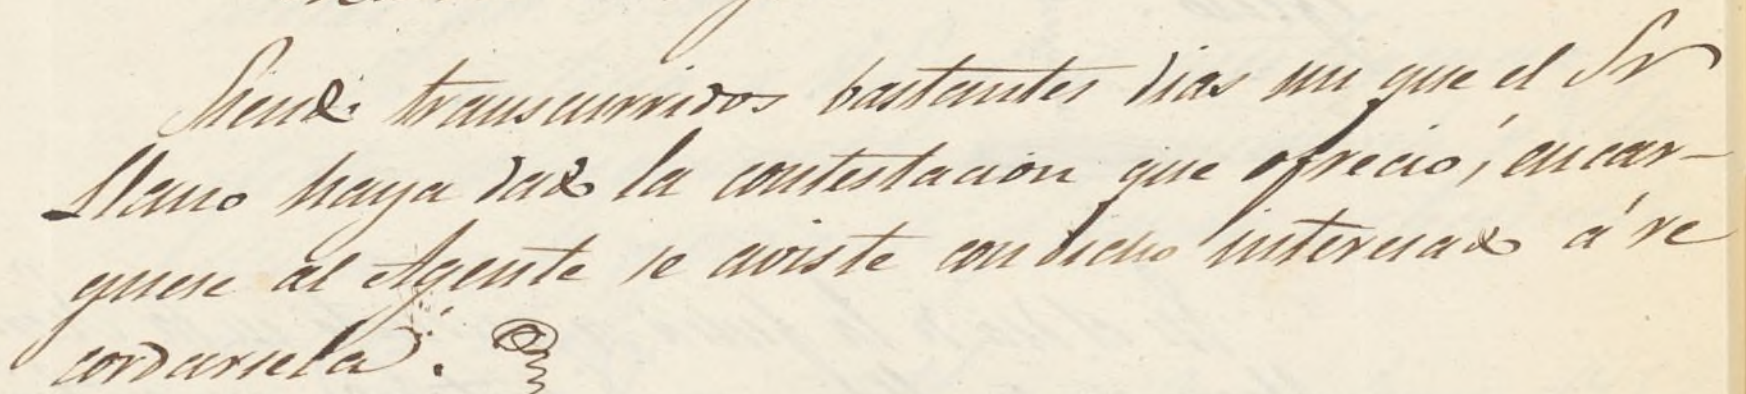 Siendo transcurridos bastantes dias sin que el Sr
Llano haya dado la contestacion que ofreció, encar-
guese al Agente se aviste con dicho interesado á re
cordarsela.